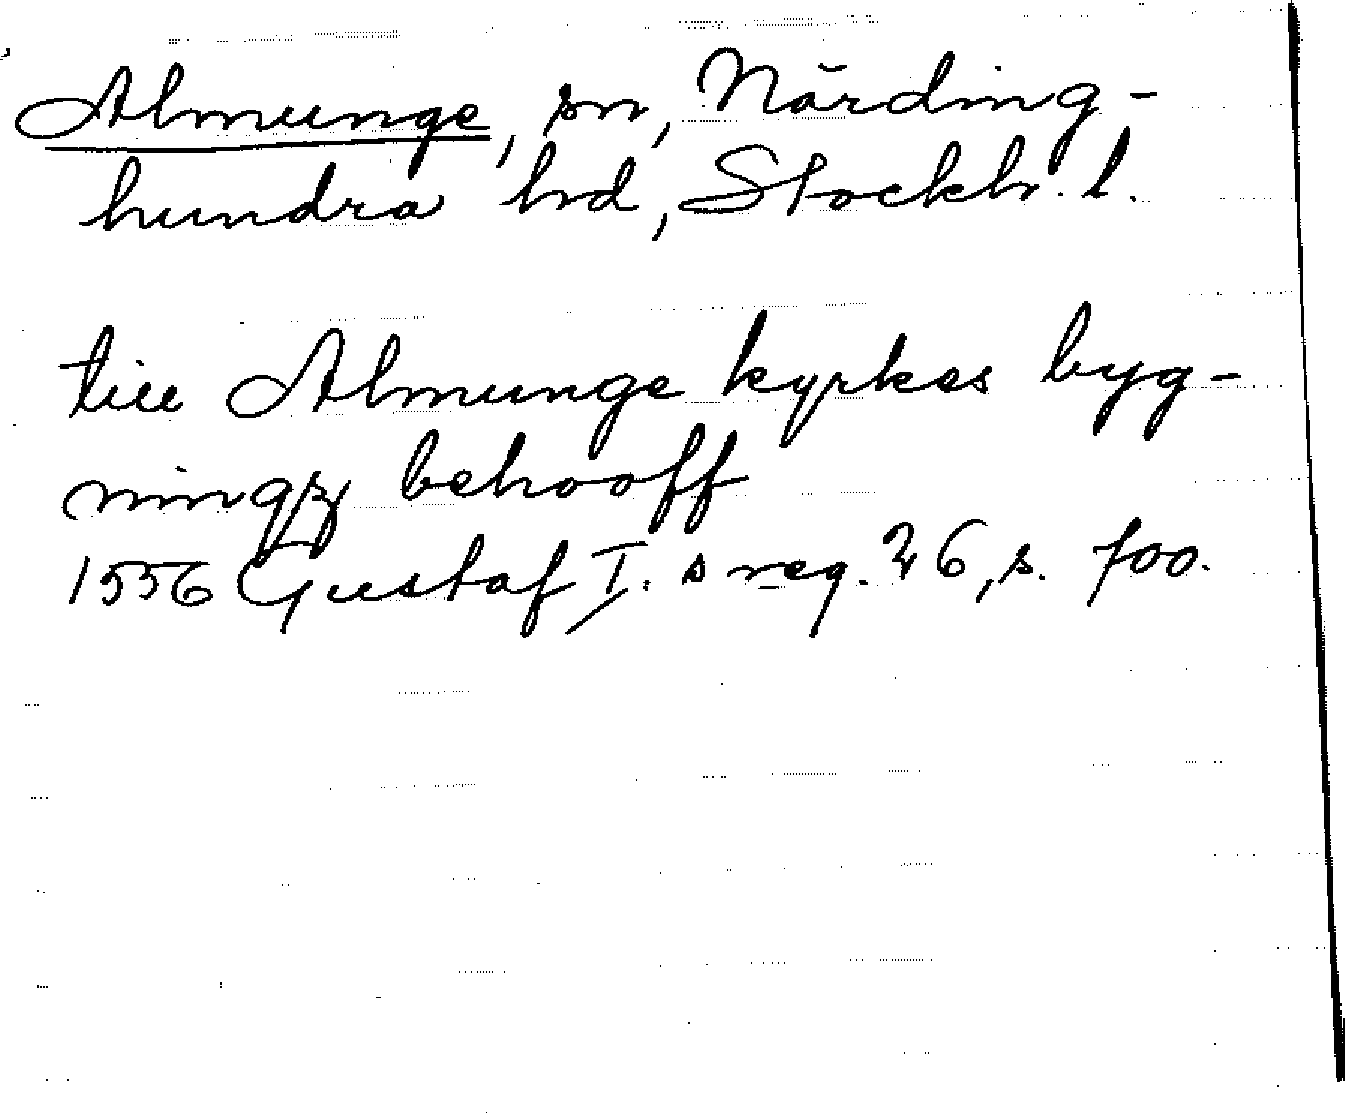 Almunge, sn, Närding-
hundra hd, Stockh. l.
till Almunge kyrkes byg-
ningz behooff
1556 Gustaf I:s reg. 26, s. 700.